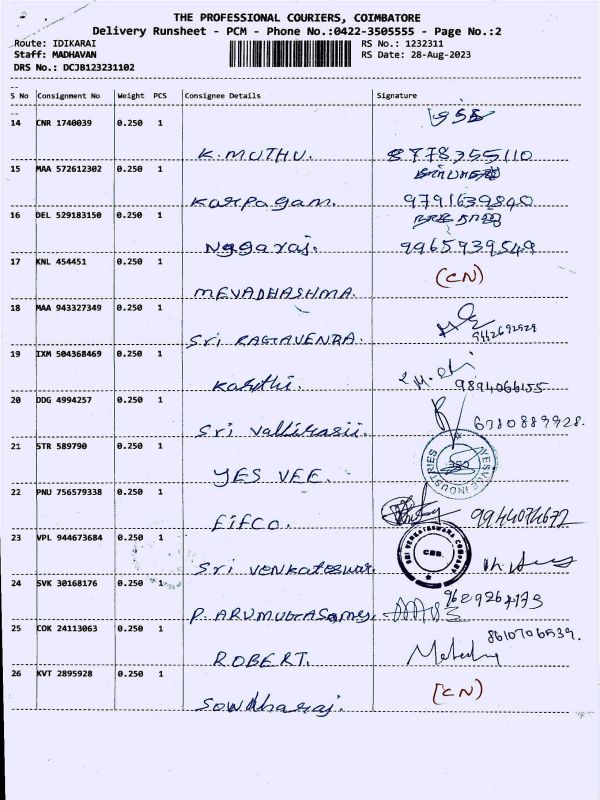 THE PROFESSIONAL COURIERS, COIMBATORE
Delivery Runsheet - PCM - Phone No.:0422-3505555 - Page No.:2
Route: IDIKARAI RS No.: 1232311
Staff: MADHAVAN RS Date: 28-Aug-2023
DRS No.: DCJB123231102
S No Consignment No Weight PCS Consignee Details Signature
14 CNR 1740039 0.250 1
K. MUTHU. 8778355110
15 MAA 572612302 0.250 1
Karpagam. 9791639840
16 DEL 529183150 0.250 1
Nagaraj. 9965939549
17 KNL 454451 0.250 1 (CN)
MEVADHASHMA.
18 MAA 943327349 0.250 1
Sri RAGAVENRA. 9442692929
19 IXM 504368469 0.250 1
Karthi. 9894066155
20 DDG 4994257 0.250 1
Sri Vallirasii. 6380889928.
21 STR 589790 0.250 1
YES VEE. YESVEE INDUSTRIES
22 PNU 756579338 0.250 1
FIFCO. 9944074672
23 VPL 944673684 0.250 1 SRI VENKATESWARA COMPANY
CBE.
Sri VENKateswar.
24 SVK 30168176 0.250 1
P. ARUMUGASamy.
25 COK 24113063 0.250 1 8610706539.
ROBERT.
26 KVT 2895928 0.250 1 [CN)
Sowdharaj.